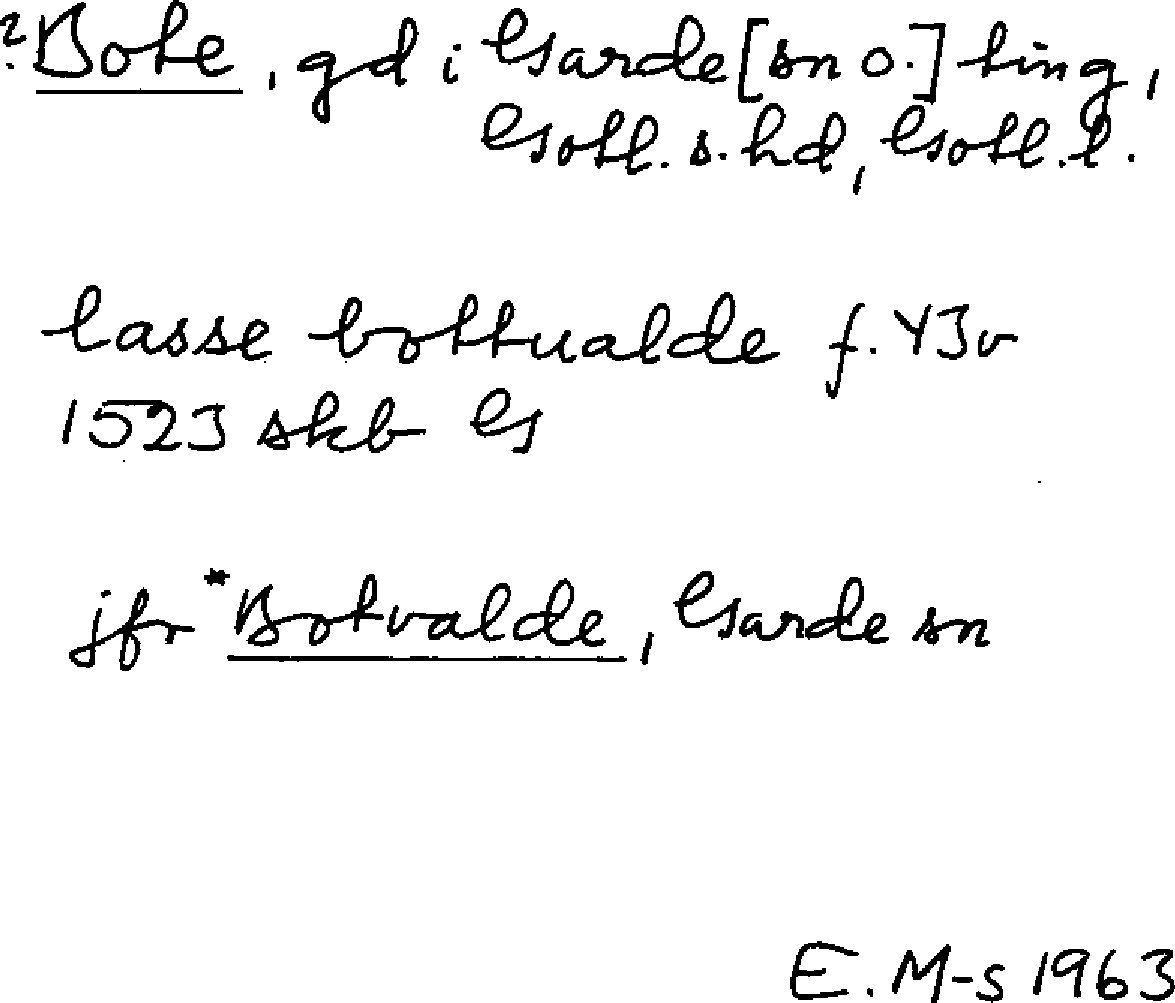 ?Bote, gd i Garde [sn o.] ting,
Gotl. s. hd, Gotl. l.
lasse bottualde f. 43v
1523 skb G
jfr *Botvalde, Garde sn
E. M-s 1963